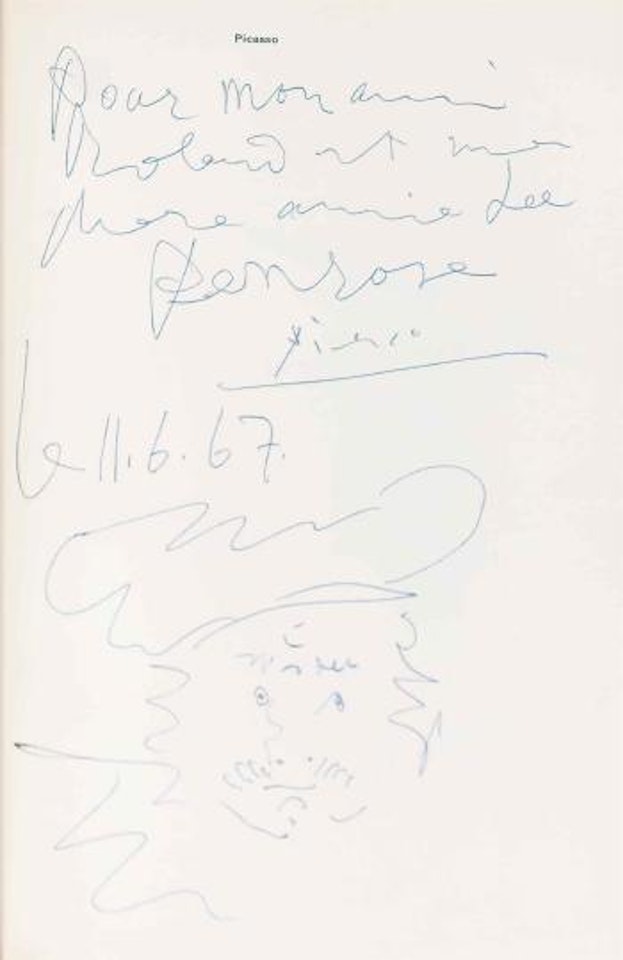 Picasso
Pour mon ami
Roland et ma
chere amie Lee
Penrose
Picasso
le 11.6.67.